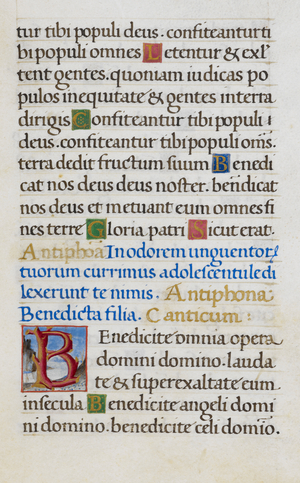 tur tibi populi deus. confiteantur ti
bi populi omnes Letentur & exul
tent gentes. quoniam iudicas po
pulos in equitate & gentes in terra
dirigis Confiteantur tibi populi
deus. confiteantur tibi populi oms̄.
terra dedit fructum suum Benedi
cat nos deus deus noster. benidicat
nos deus et metuant eum omnes fi
nes terre Gloria patri Sicut erat.
Antiphoa In odorem unguentoꝝ
tuorum currimus adolescentule di
lexerunt te nimis. Antiphona
Benedicta filia. Canticum.
Benedicite omnia opera
domini domino. lauda
te & superexaltate eum
in secula Benedicite angeli domi
ni domino. benedicite celi domio.